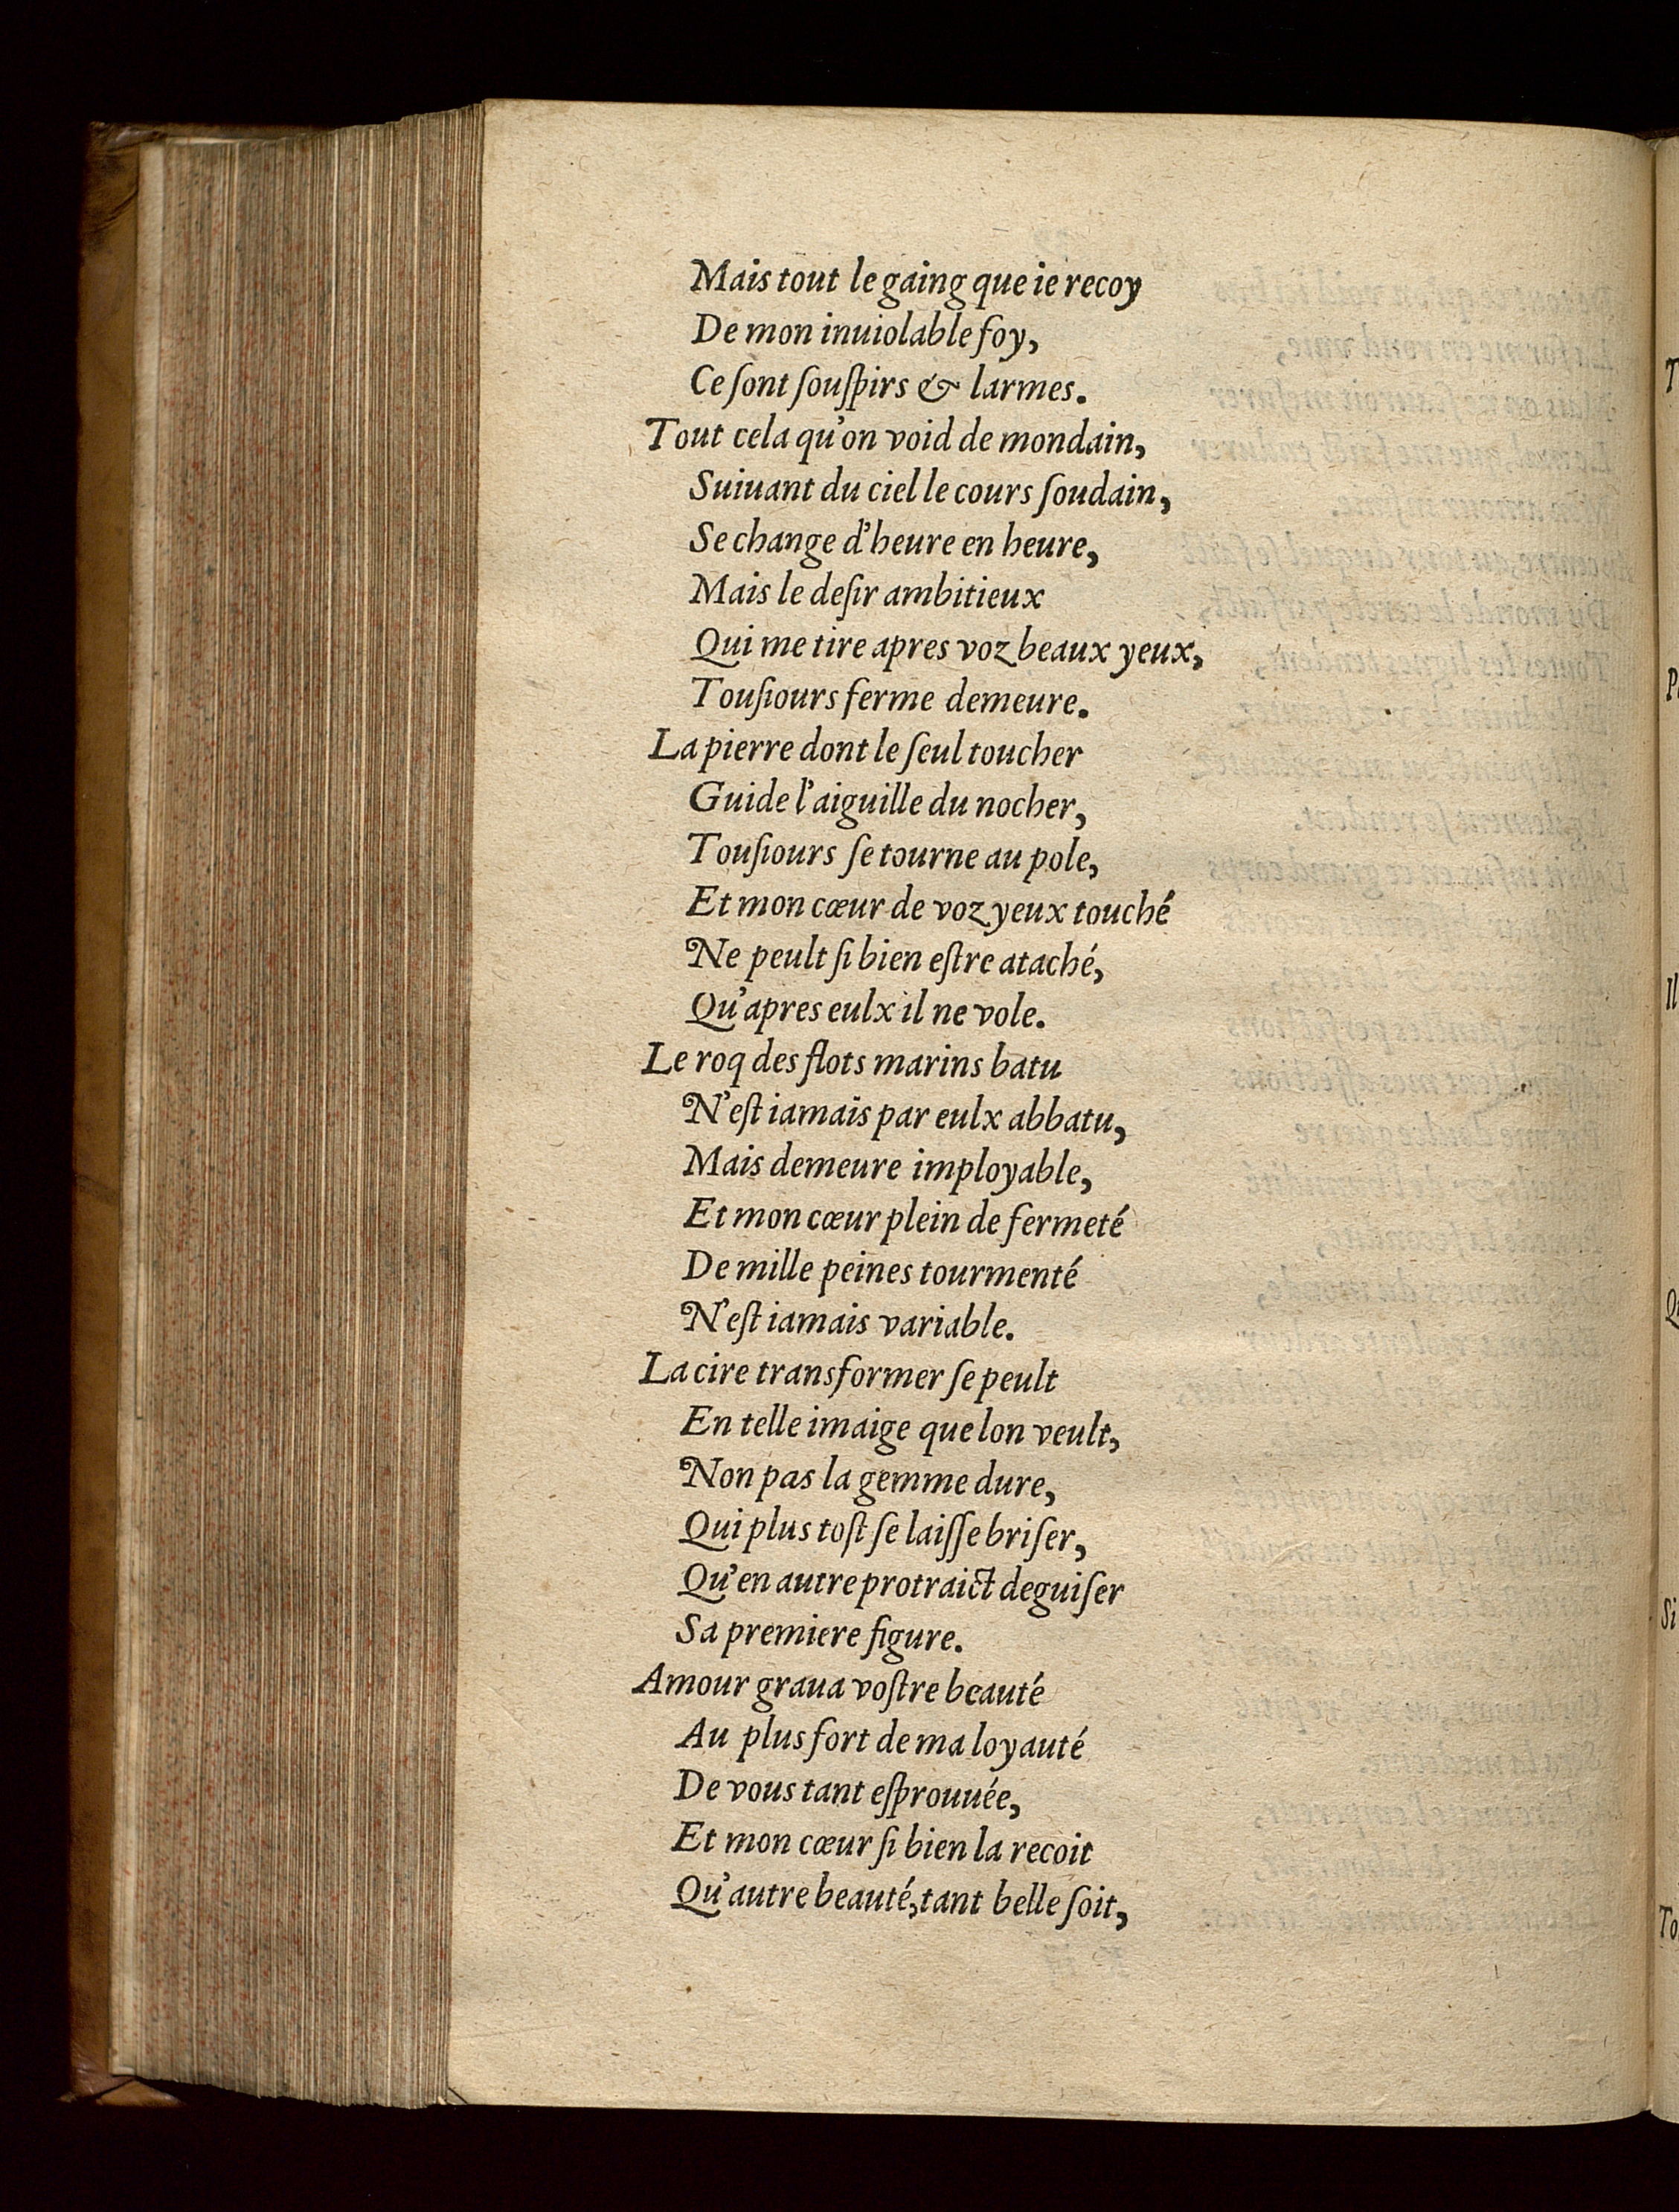 Mais tout le gaing que ie recoy
De mon inuiolable foy,
Ce ſont ſouſpirs & larmes.
Tout cela qu'on void de mondain,
Suiuant du ciel le cours ſoudain,
Se change d'heure en heure,
Mais le deſir ambitieux
Qui me tire apres voz beaux yeux,
Touſiours ferme demeure.
La pierre dont le ſeul toucher
Guide l'aiguille du nocher,
Touſiours ſe tourne au pole,
Et mon cœur de voz yeux touché
Ne peult ſi bien eſtre ataché,
Qu'apres eulx il ne vole.
Le roq des flots marins batu
N'eſt iamais par eulx abbatu,
Mais demeure imployable,
Et mon cœur plein de fermeté
De mille peines tourmenté
N'eſt iamais variable.
La cire transformer ſe peult
En telle imaige que lon veult,
Non pas la gemme dure,
Qui plus toſt ſe laiſſe briſer,
Qu'en autre protraict deguiſer
Sa premiere figure.
Amour graua voſtre beauté
Au plus fort de ma loyauté
De vous tant eſprouuée,
Et mon cœur ſi bien la recoit
Qu'autre beauté, tant belle ſoit,